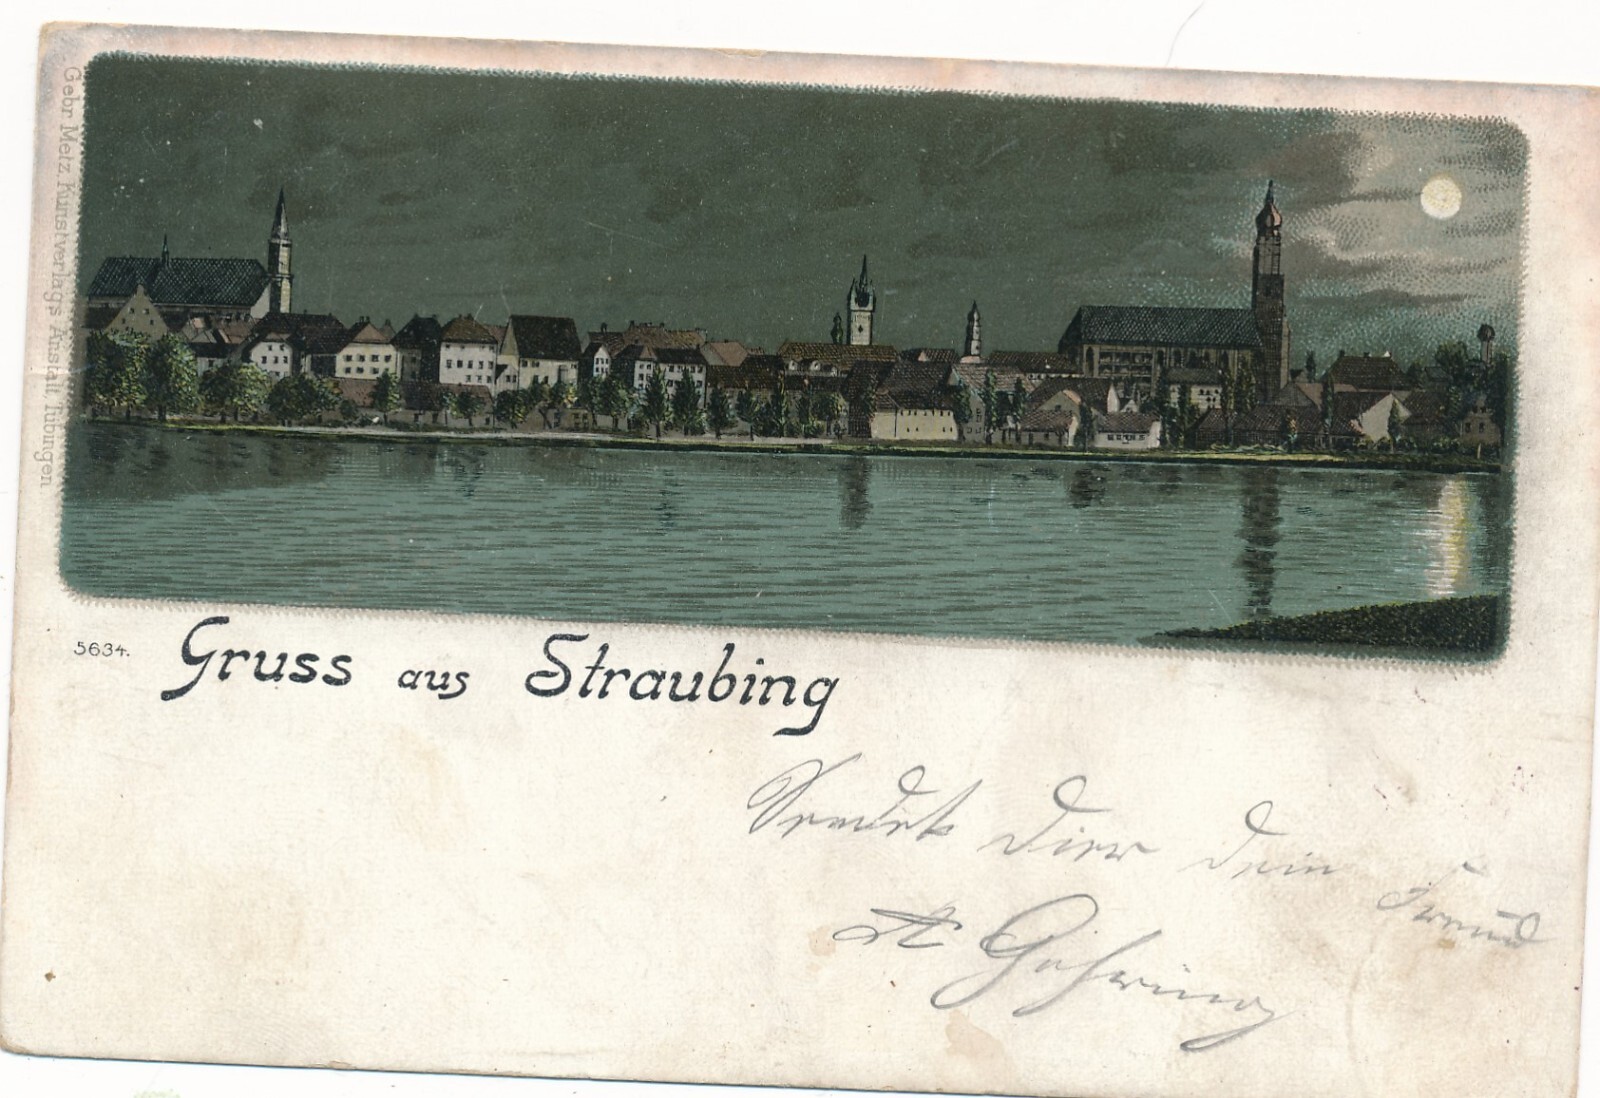 Gebr Metz, Kunstverlags Anstalt, Tübingen.
5634.
Gruss aus Straubing
Sendet Dier dein Freund
A Gehring